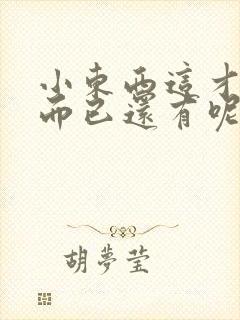 小東西這才
而已還有呢
胡夢瑩